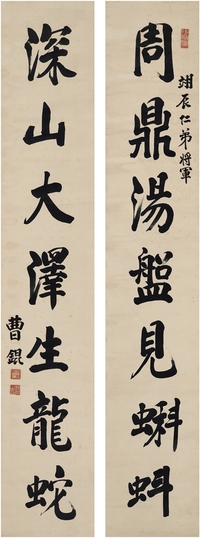 周鼎湯盤見蝌蚪
翊辰仁弟將軍
深山大澤生龍蛇
曹錕